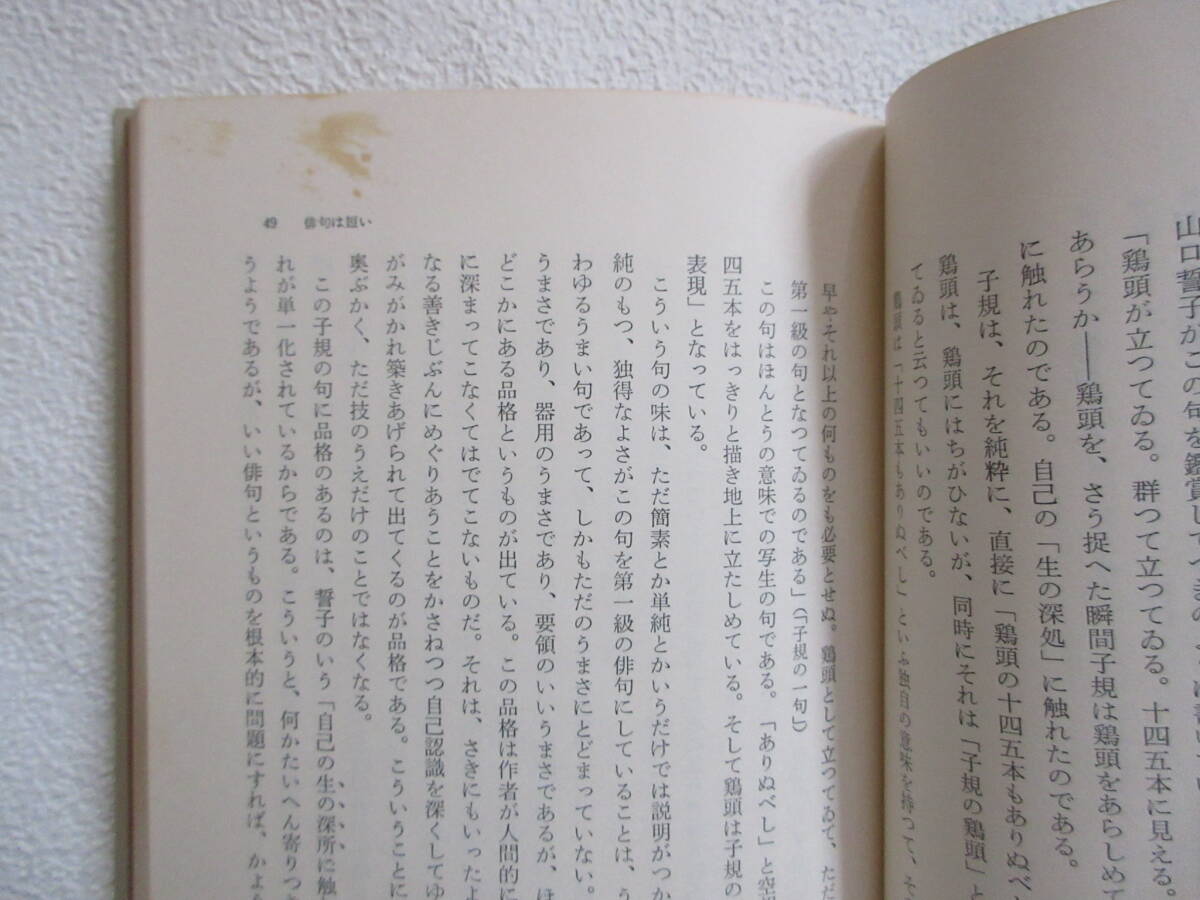 山口誓子がこの句を鑑賞してつぎの
「鶏頭が立つてゐる。群つて立つてゐる。十四五本に見える。
あらうか――鶏頭を、さう捉へた瞬間子規は鶏頭をあらしめて
に触れたのである。自己の「生の深処」に触れたのである。
子規は、それを純粋に、直接に「鶏頭の十四五本もありぬべ
鶏頭は、鶏頭にはちがひないが、同時にそれは「子規の鶏頭」と
てゐると云つてもいいのである。
鶏頭は「十四五本もありぬべし」といふ独自の意味を持つて、そ
49 俳句は短い
早やそれ以上の何ものをも必要とせぬ。鶏頭として立つてゐて、ただ
第一級の句となつてゐるのである」(「子規の一句」)
この句はほんとうの意味での写生の句である。「ありぬべし」と空想
四五本をはっきりと描き地上に立たしめている。そして鶏頭は子規の
表現」となっている。
こういう句の味は、ただ簡素とか単純とかいうだけでは説明がつか
純のもつ、独得なよさがこの句を第一級の俳句にしていることは、う
わゆるうまい句であって、しかもただのうまさにとどまっていない。
うまさであり、器用のうまさであり、要領のいいうまさであるが、ほ
どこかにある品格というものが出ている。この品格は作者が人間的に
に深まってこなくてはでてこないものだ。それは、さきにもいったよ
なる善きじぶんにめぐりあうことをかさねつつ自己認識を深くしてゆ
がみがかれ築きあげられて出てくるのが品格である。こういうことに
奥ぶかく、ただ技のうえだけのことではなくなる。
この子規の句に品格のあるのは、誓子のいう「自己の生の深所に触
れが単一化されているからである。こういうと、何かたいへん寄りつ
うようであるが、いい俳句というものを根本的に問題にすれば、かよう